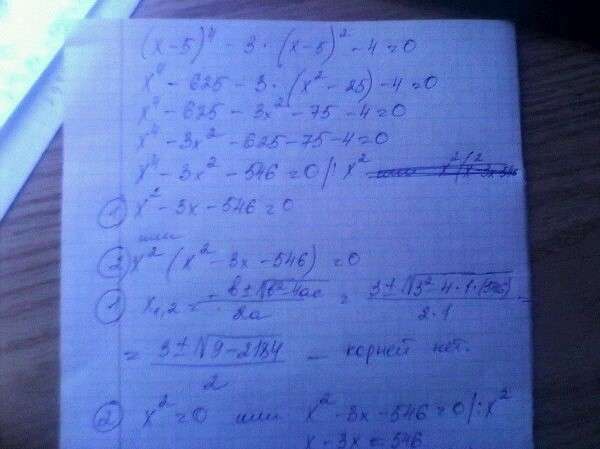 (x-5)⁴ - 3·(x-5)² - 4 = 0
x⁴ - 625 - 3·(x² - 25) - 4 = 0
x⁴ - 625 - 3x² - 75 - 4 = 0
x⁴ - 3x² - 625 - 75 - 4 = 0
x⁴ - 3x² - 546 = 0 /: x²
① x² - 3x - 546 = 0
или
② x² (x² - 3x - 546) = 0
① x₁,₂ = (-b ± √(b² - 4ac))/(2a) = (3 ± √(3² - 4·1·(546)))/(2·1) =
= (3 ± √(9 - 2184))/2 - корней нет.
② x² = 0 или x² - 3x - 546 = 0 /: x²
x - 3x = 546